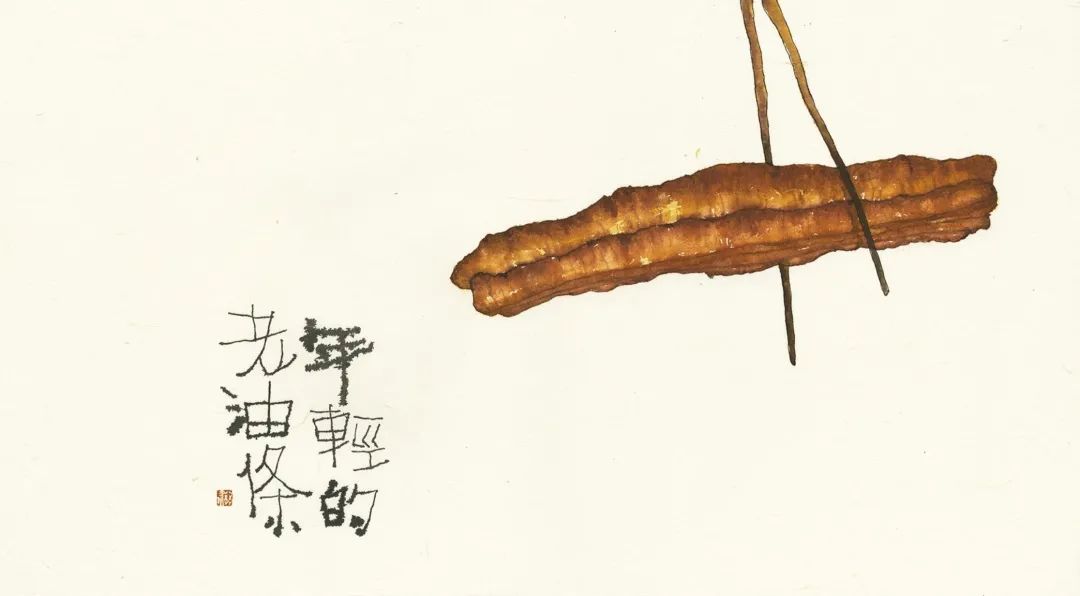 年輕的
老油條